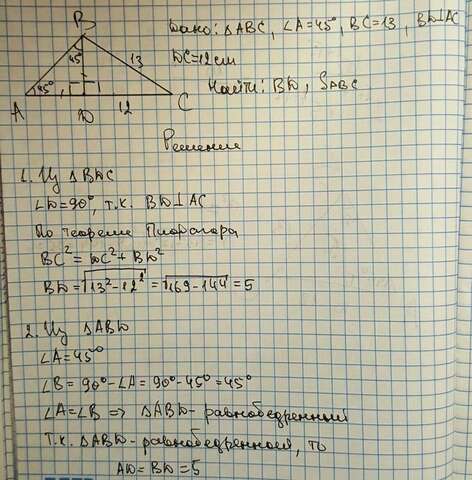 B
45°
13
A
45°
D
12
C
Дано: △ABC, ∠A=45°, BC=13, BD⊥AC
DC=12см
Найти: BD, S_ABC
Решение
1. Из △BDC
∠D=90°, т.к. BD⊥AC
По теореме Пифагора
BC²=DC²+BD²
BD=√13²-12²=√169-144=5
2. Из △ABD
∠A=45°
∠B=90°-∠A=90°-45°=45°
∠A=∠B => △ABD-равнобедренный
т.к. △ABD-равнобедренный, то
AD=BD=5